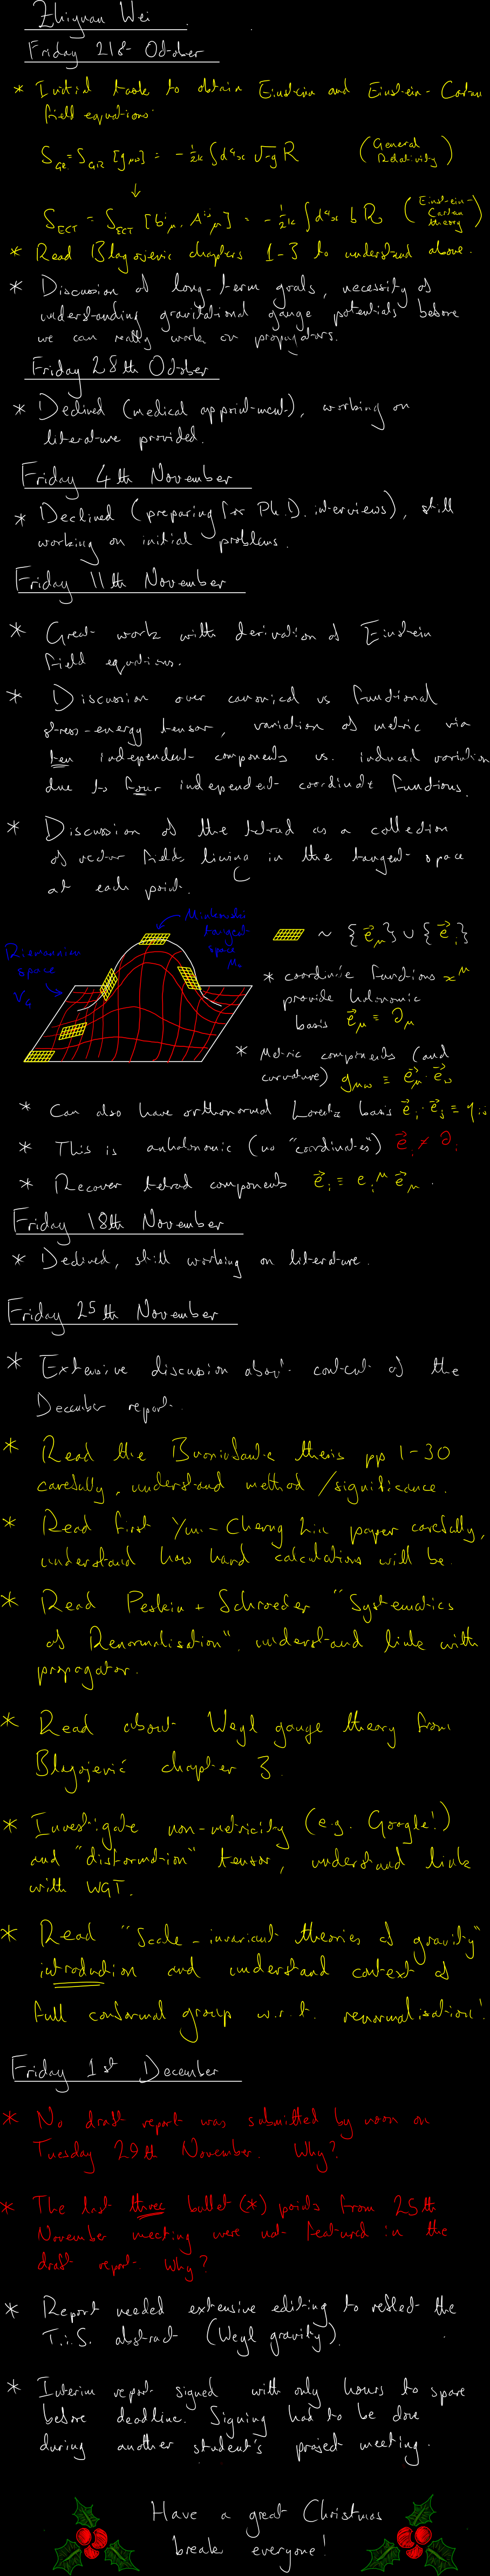 Zhiyuan Wei
Friday 21st October
* Initial task to obtain Einstein and Einstein-Cartan
field equations.
S_GR = S_GR [g_μν] = -1/2κ ∫d⁴x √-g R (General
Relativity)
↓
S_ECT = S_ECT [b^i_μ, A^ij_μ] = -1/2κ ∫d⁴x b R (Einstein-
Cartan
theory)
* Read Blagojevic chapters 1-3 to understand above.
* Discussion of long-term goals, necessity of
understanding gravitational gauge potentials before
we can really work on propagators.
Friday 28th October
* Declined (medical appointment), working on
literature provided.
Friday 4th November
* Declined (preparing for Ph.D. interviews), still
working on initial problems.
Friday 11th November
* Great work with derivation of Einstein
field equations.
* Discussion over canonical vs functional
stress-energy tensor, variation of metric via
ten independent components vs. induced variation
due to four independent coordinate functions.
* Discussion of the tetrad as a collection
of vector fields living in the tangent space
at each point.
Riemannian
space
V₄
Minkowski
tangent
space
M₄
~ {e⃗_μ} ∪ {e⃗_i}
* coordinate functions x^μ
provide holonomic
basis e⃗_μ ≡ ∂_μ
* Metric components (and
curvature) g_μν ≡ e⃗_μ · e⃗_ν
* Can also have orthonormal Lorentz basis e⃗_i · e⃗_j = η_ij
* This is anholonomic (no "coordinates") e⃗_i ≠ ∂_i
* Recover tetrad components e⃗_i ≡ e_i^μ e⃗_μ.
Friday 18th November
* Declined, still working on literature.
Friday 25th November
* Extensive discussion about content of the
December report.
* Read the thesis pp 1-30
carefully, understand method/significance.
* Read first Yun-Cherng Lin paper carefully,
understand how hard calculations will be.
* Read Peskin + Schroeder "Systematics
of Renormalisation", understand link with
propagator.
* Read about Weyl gauge theory from
Blagojević chapter 3.
* Investigate non-metricity (e.g. Google!)
and "disformation" tensor, understand link
with WGT.
* Read "Scale-invariant theories of gravity"
introduction and understand context of
full conformal group w.r.t. renormalisation!
Friday 1st December
* No draft report was submitted by noon on
Tuesday 29th November. Why?
* The last three bullet (*) points from 25th
November meeting were not featured in the
draft report. Why?
* Report needed extensive editing to reflect the
T.i.S. abstract (Weyl gravity).
* Interim report signed with only hours to spare
before deadline. Signing had to be done
during another student's project meeting.
Have a great Christmas
break everyone!